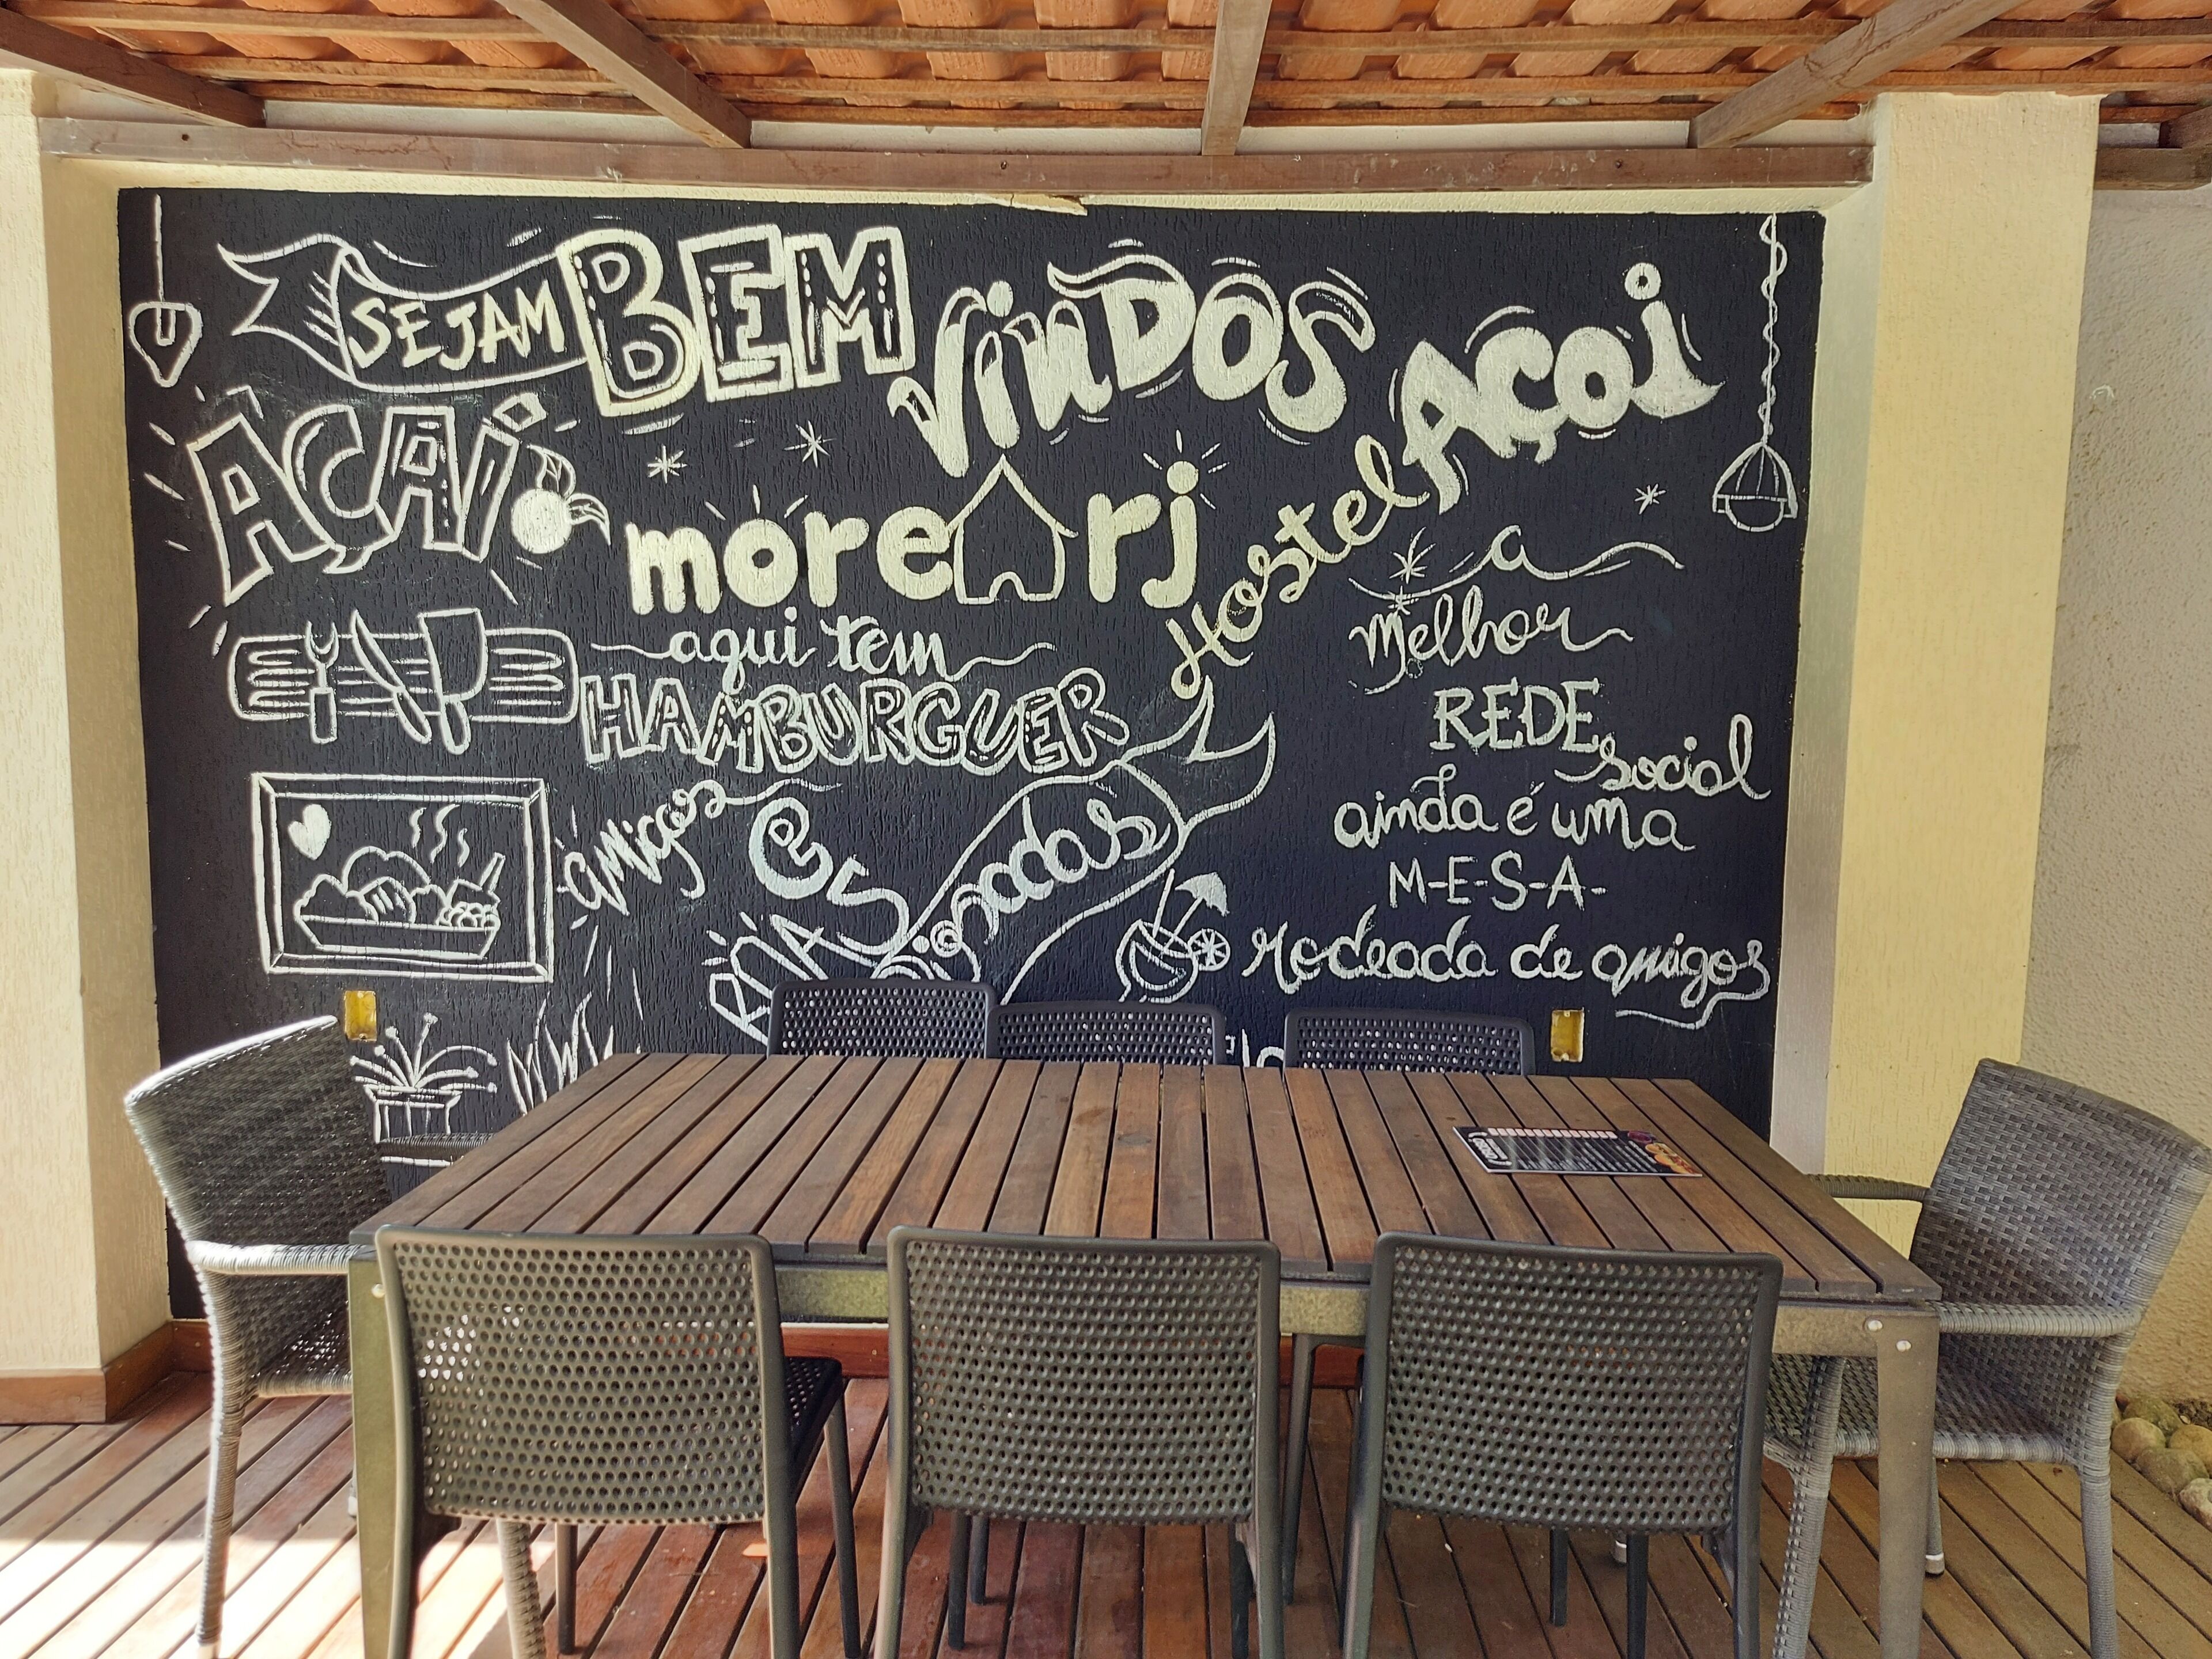 SEJAM BEM VINDOS
AÇAÍ
more rj
Hostel AÇAí
aqui tem
HAMBURGUER
amigos
a
melhor
REDE social
ainda é uma
M-E-S-A-
rodeada de amigos